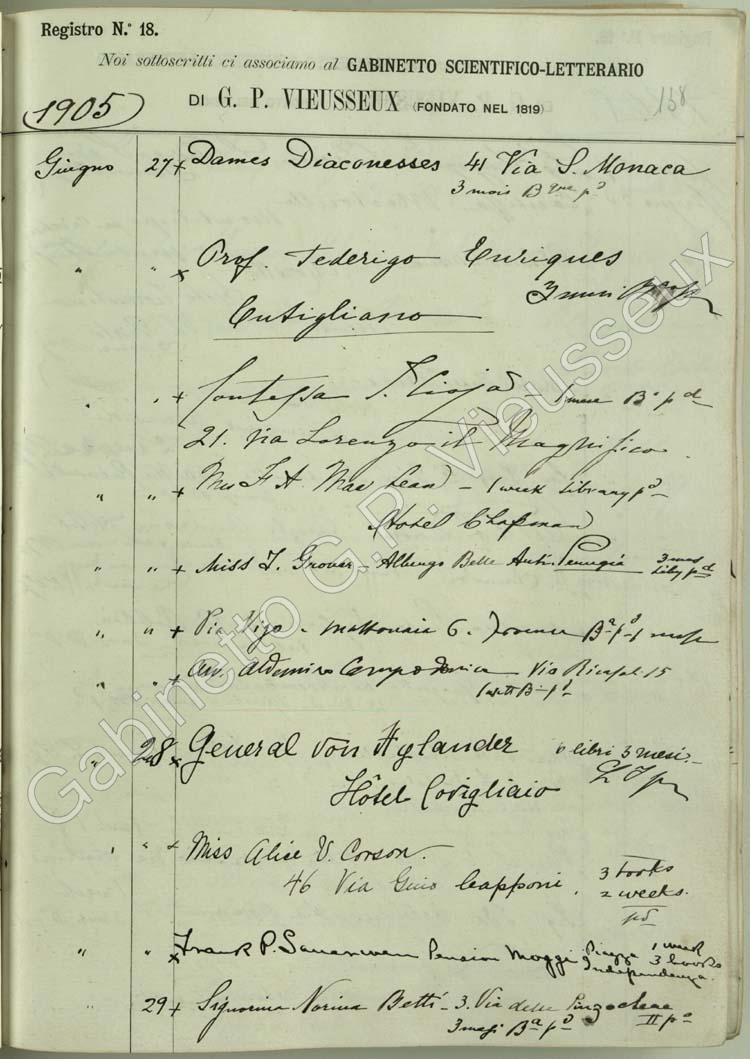 Registro N.° 18.
Noi sottoscritti ci associamo al GABINETTO SCIENTIFICO-LETTERARIO
DI G. P. VIEUSSEUX (FONDATO NEL 1819)
158
1905
Giugno 27 + Dames Diaconesses 41 Via S. Monaca
3 mois B que pd
" " x Prof. Federigo Enriques
3 mesi
Cutigliano
" + Contessa 1 mese Bª pd
21. Via Lorenzo il Magnifico.
" " + F. A. Mac Lean – 1 week Library pd –
Hotel Chapman
" " + Miss J. Grover – Albergo Belle Arti. Perugia 3 mos
Liby pd
" " + Pia Vigo – Mattonaia 6. Bª pd 1 mese
" " + Av. Aldemiro Campodonico – Via Ricasoli 15
1 sett B– pd
" 28 x General von Hylander 6 libri 3 mesi –
Hôtel Covigliaio
" " + Miss Alice V. Corson.
46 Via Gino Capponi. 3 books
2 weeks.
pd
" " x Frank P. Pension Moggi Piazza 1 week
Independenza. 3 books
29 + Signorina Norina Betti – 3. Via delle Pinzochere
3 mesi Bª pd II po
Gabinetto G.P. Vieusseux